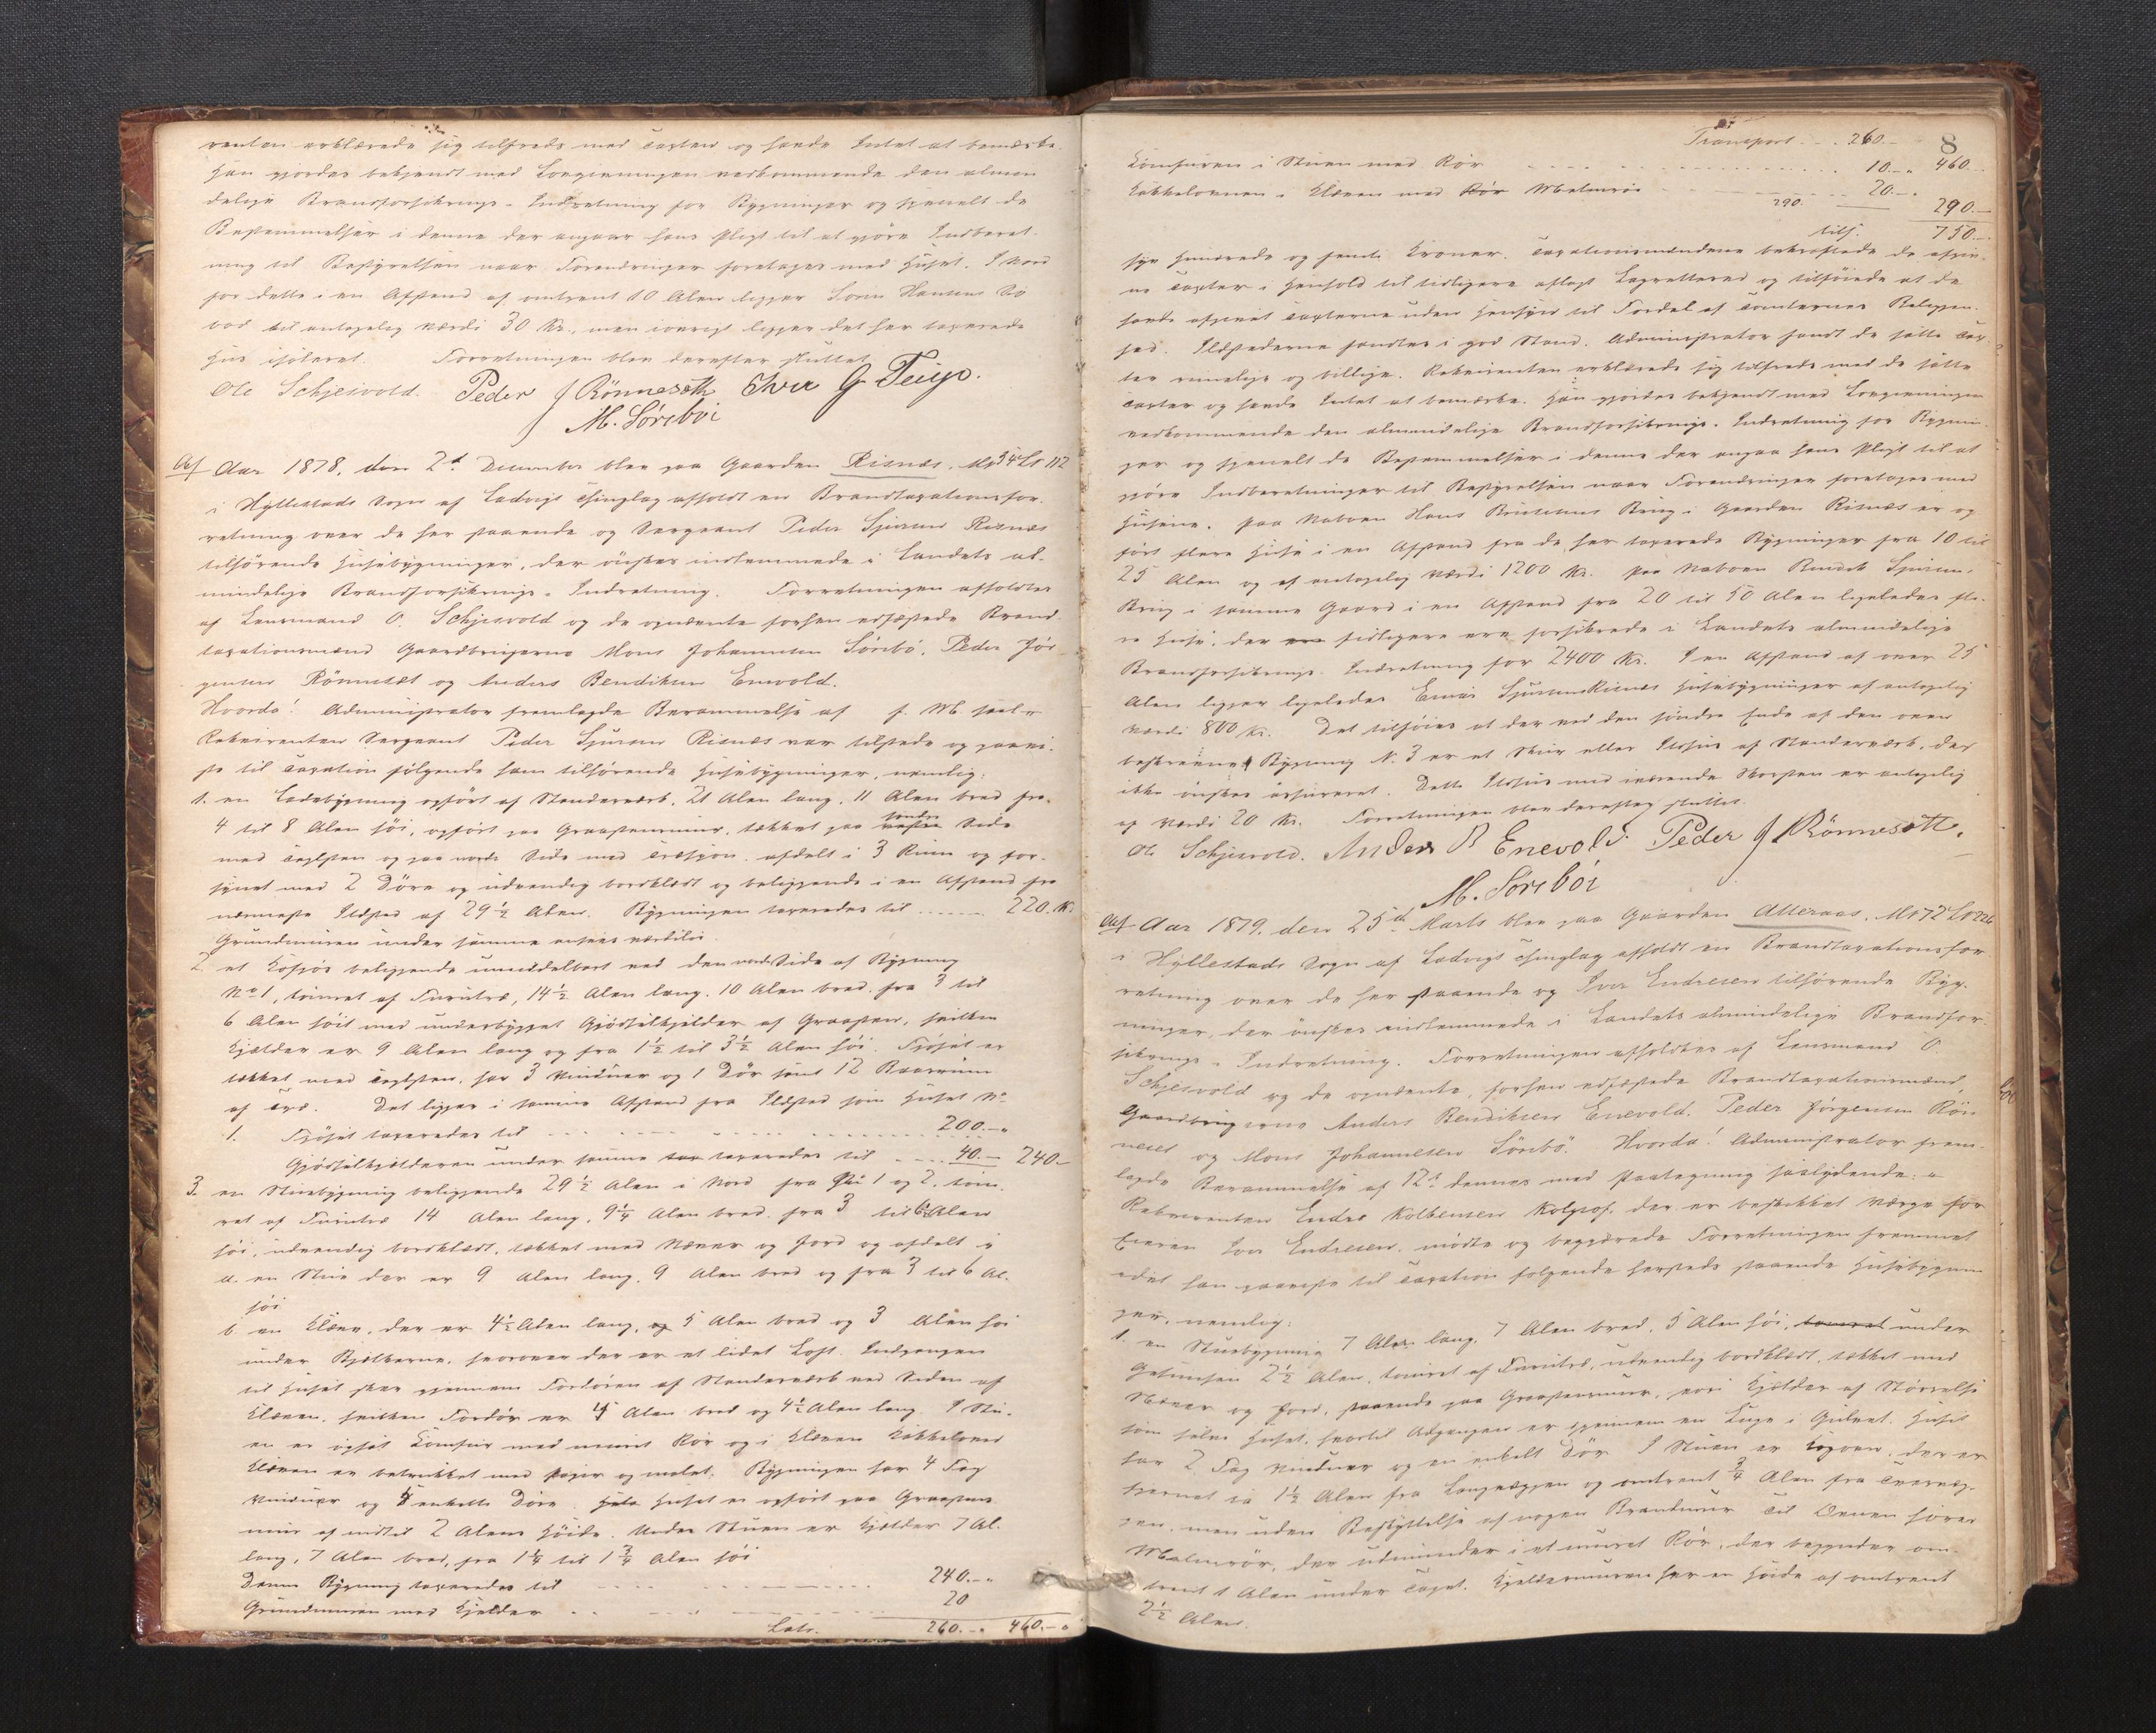 renten erklærede sig tilfreds med Taxten og havde Intet at bemærke.
Han gjordes bekjendt med Lovgivningen vedkommende den almin
delige Brandforsikrings-Indretning for Bygninger og specielt de
Bestemmelser i denne der angaar hans Pligt til at gjöre Indberet-
ning til Bestyrelsen naar Forandringer foretages med Huset. I Nord
for dette i en Afstand af omtrent 10 Alen ligger Sörin Hansens Sö
bod til antagelig Værdi 30 Kr., men iövrigt ligger det her taxerede
Hus isoleret. Forretningen blev derefter sluttet.
Ole Schjesvold. Peder J Rönnesæth Iver G Teige.
M. Söreböi
Aar 1878. den 2d December blev paa Gaarden Risnæs, Mr 34 Lr 112
i Hyllestads Sogn af Ladvigs Thinglag afholdt en Brandtaxationsfor-
retning over de her staaende og Sergeant Peder Sjursen Risnæs
tilhörende Husebygninger, der önskes indlemmede i Landets al-
mindelige Brandforsikrings-Indretning. Forretningen afholdtes
af Lensmand O. Schjesvold og de opnævnte forhen edfæstede Brand
taxationsmænd Gaardbrugerne Mons Johannesen Sörebö, Peder Jör
gensen Rönnesæt og Anders Bendiksen Enevold.
Hvorda! Administrator fremlagde Berammelse af f. M. saal.
Rekvirenten Sergeant Peder Sjursen Risnæs var tilstede og paavi-
ste til Taxation fölgende ham tilhörende Husebygninger, nemlig:
1. en Ladebygning opfört af Stenderværk, 21 Alen lang, 11 Alen bred fra
4 til 8 Alen höi, opfört paa Graastensmur, tækket paa söndre Side
med Taglsten og paa nordre Side med Træspon, afdelt i 3 Rum og for-
synet med 2 Döre og udvendig bordklædt og beliggende i en Afstand fra
nærmeste Ildsted af 29 1/2 Alen. Bygningen taxeredes til ..... 220. Kr.
Grundmuren under samme ansees værdilös.
2. et Kofjös beliggende umiddelbart ved den nordre Side af Bygning
No 1, tömret af Furutræ, 14 1/2 Alen lang, 10 Alen bred, fra 3 til
6 Alen höit med underbygget Gjödselkjælder af Graasten, hvilken
Kjælder er 9 Alen lang og fra 1 1/2 til 3 1/2 Alen höi. Fjöset er
tækket med Taglsten, har 3 Vinduer og 1 Dör samt 12 Baaserum
af Træ. Det ligger i samme Afstand fra Ildsted som Huset No
1. Fjöset taxeredes til ........ 200.-"
Gjödselkjælderen under samme taxeredes til .... 40.- 240.-
3. en Stuebygning beliggende 29 1/2 Alen i Nord fra Hus 1 og 2. töm-
ret af Furutræ 14 Alen lang, 9 1/4 Alen bred, fra 3 til 6 Alen
höi, udvendig bordklædt, tækket med Næver og Jord og afdelt i
a. en Stue der er 9 Alen lang, 9 Alen bred og fra 3 til 6 Al.
höi
b. en Kleve, der er 4 1/2 Alen lang, og 5 Alen bred og 3 Alen höi
under Bjælkerne, hvorover der er et lidet Loft. Indgangen
til Huset sker gjennem Fordören af Stenderværk ved Siden af
Kleven, hvilken Fordör er 4 Alen bred og 4 1/2 Alen lang. I Stu-
en er opsat Komfur med muret Rör og i Kleven Kakkelovn
Kleven er betrukket med Papir og malet. Bygningen har 4 Fag
Vinduer og 4 enkelte Döre. Huset er opfört paa Graastens
mur af indtil 2 Alens Höide. Under Stuen er Kjælder 7 Al.
lang, 7 Alen bred, fra 1 1/4 til 1 3/4 Alen höi
Denne Bygning taxeredes til ..... 240.-"
Grundmuren med Kjelder ..... 20
Lats. 260.-" 460.-"
8
Transport ... 260.-
Komfuren i Stuen med Rör ..... 10.-" 460.-
Kakkelovnen i Kleven med Rör Malmrör ..... 20.-
290. 290.-
tils. 750.-
syv Hundrede og femti Kroner. Taxationsmændene bekræftede de afgiv-
ne Taxter i Henhold til tidligere aflagt Lagretteed og tilföiede at de
havde afgivet Taxterne uden Hensyn til Fordel af Tomternes Beliggen-
hed. Ildstederne fandtes i god Stand. Administrator fandt de satte Tax-
ter rimelige og billige. Rekvirenten erklærede sig tilfreds med de satte
Taxter og havde Intet at bemærke. Han gjordes bekjendt med Lovgivningen
vedkommende den almindelige Brandforsikrings-Indretning for Bygnin-
ger og specielt de Bestemmelser i denne der angaa hans Pligt til at
gjöre Indberetninger til Bestyrelsen naar Forandringer foretages med
Husene. Paa Naboen Hans Brug i Gaarden Risnæs er op
fört flere Huse i en Afstand fra de her taxerede Bygninger fra 10 til
25 Alen og af antagelig Værdi 1200 Kr. Paa Naboen Sjursens
Brug i samme Gaard i en Afstand fra 20 til 50 Alen ligeledes fle-
re Huse, der ere tidligere ere forsikrede i Landets almindelige
Brandforsikrings-Indretning for 2400 Kr. I en Afstand af over 25
Alen ligger ligeledes Sjursen Risnæs Husebygninger af antagelig
Værdi 800 Kr. Det tilföies at der ved den söndre Ende af den oven
beskrevne Bygning N. 3 er et Skur eller Ildhus af Stenderværk, der
ikke önskes assureret. Dette Ildhus med iværende Skorsten er antagelig
af Værdi 20 Kr. Forretningen blev derefter sluttet.
Ole Schjesvold. Anders B Enevold. Peder J Rönnesætt.
M. Söreböi
Aar 1879. den 25d Marts blev paa Gaarden Atteraas, Mr 72 Lr 226
i Hyllestads Sogn af Ladvigs Thinglag afholdt en Brandtaxationsfor
retning over de her staaende og Iver Endresen tilhörende Byg-
ninger, der önskes indlemmede i Landets almindelige Brandfor
sikrings-Indretning. Forretningen afholdtes af Lensmand O.
Schjesvold og de opnævnte, forhen edfæstede Brandtaxationsmænd,
Gaardbrugerne Anders Bendiksen Enevold, Peder Jörgensen Rön
neset og Mons Johannesen Sörebö. Hvorda! Administrator frem-
lagde Berammelse af 12te dennes med Paategning saalydende: "
Rekvirenten Endre Kolbensen der er beskikket Værge for
Eieren Iver Endresen, mödte og begjærede Forretningen fremmet
idet han paaviste til Taxation fölgende hersteds staaende Husebygnin
ger, nemlig:
1. en Stuebygning 7 Alen lang, 7 Alen bred, 5 Alen höi, tömret under
Gesimsen 2 1/2 Alen, tömret af Furutræ, udvendig bordklædt, tækket med
Næver og Jord, staaende paa Graastensmur, hvori Kjælder af Störrelse
som selve Huset, hvortil Adgangen er igjennem en Luge i Gulvet. Huset
har 2 Fag Vinduer og en enkelt Dör. I Stuen er Kogovn, der er
fjernet ca 1 1/2 Alen fra Langvæggen og omtrent 3/4 Alen fra Tvervæg-
gen, men uden Beskyttelse af nogen Brandmur. Til Ovnen hörer
Malmrör, der udmunder i et muret Rör, der begynder om-
trent 1 Alen under Taget. Kjeldermuren har en Höide af omtrent
2 1/2 Alen.